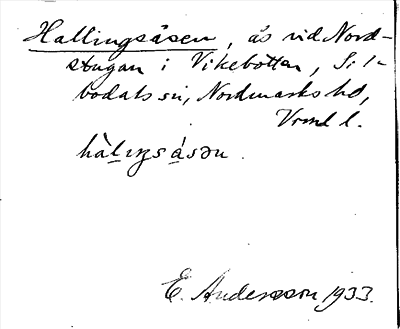 Hallingsåsen, ås vid Nord-
stugan i Vikebottan, S:l-
bodals sn, Nordmarks hd,
Vrml l.
hàlıŋsåsəu.
E. Andersson 1933.